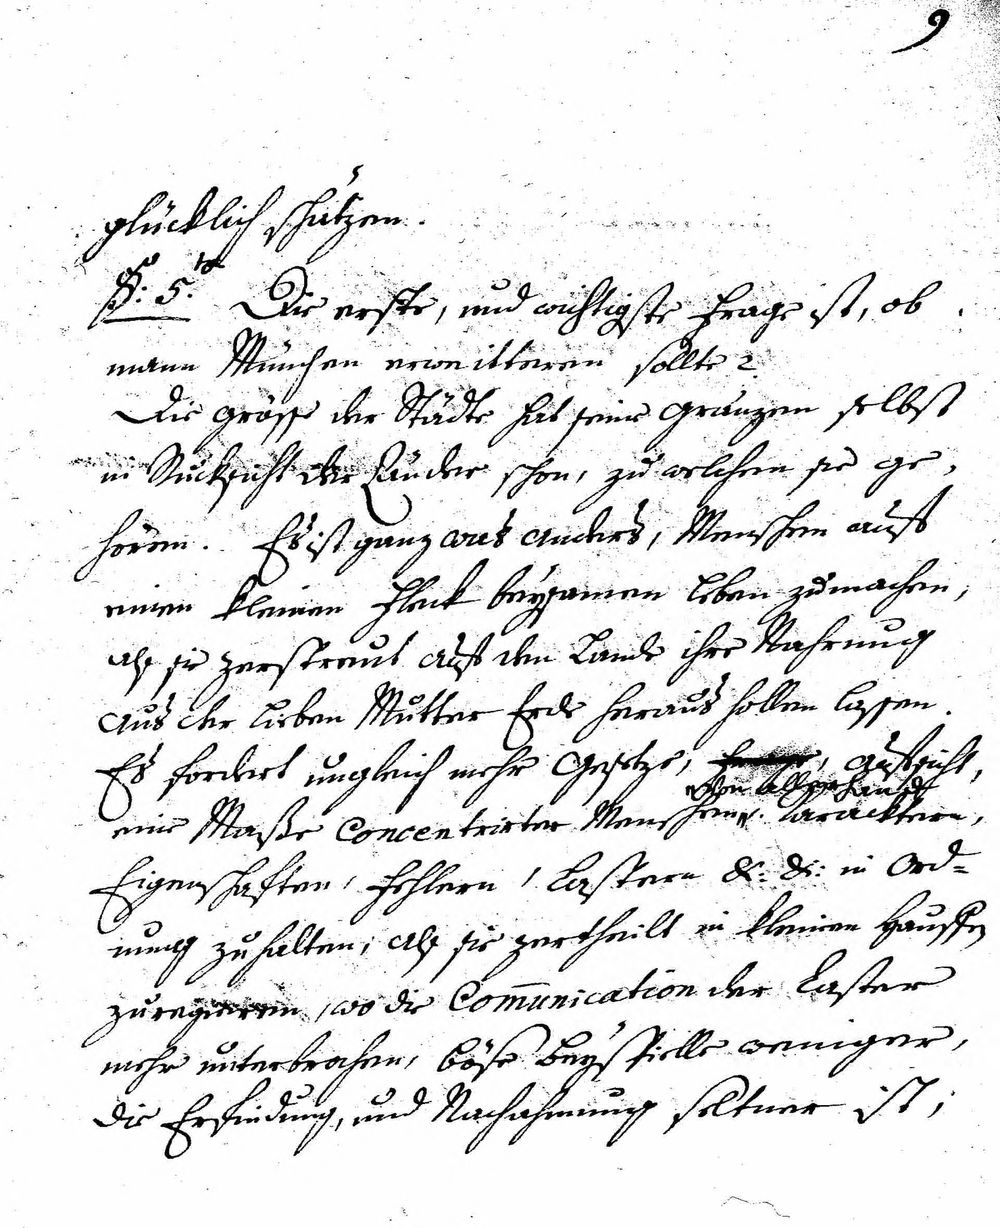 9
glücklich schätzen.
§: 5.te Die erste, und wichtigste Frage ist, ob
mann München erweitteren sollte?
Die grösse der Städte hat seine Gränzen selbst
in Rücksicht der Länder schon, zu welchen sie ge,
hören. Es ist ganz was anders, Menschen auff
einen kleinen Fleck beysamen leben zumachen,
als sie zerstreut auff dem Lande ihre Nahrung
aus der lieben Mutter Erde heraus hollen lassen.
Es fordert ungleich mehr Gesetze, Aufsicht,
von allerhand
eine Maße Concentrirter Menschen Caracktern,
Eigenschaften, Fehlern, Lastern &: &: in Ord=
nung zuhalten; als sie zertheilt in kleinen Hauffen
zuregieren, wo die Communication der Laster
mehr unterbrochen, böse Beyspielle weniger,
die Erfindung, und Nachahmung seltner ist;